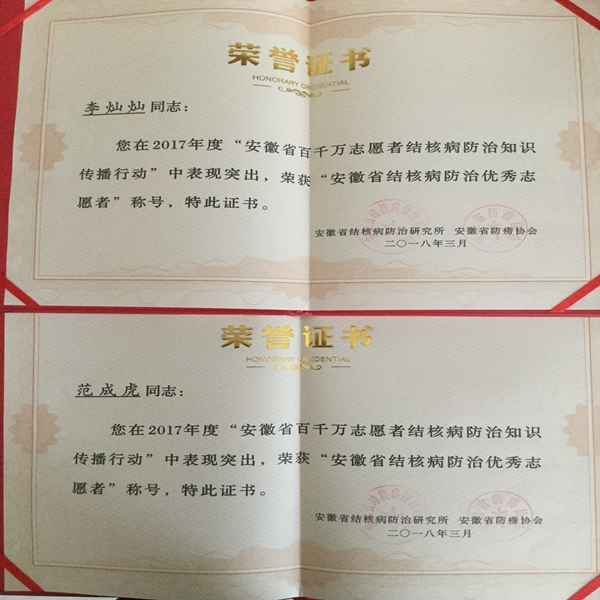 荣誉证书
HONORARY CREDENTIAL
李灿灿同志：
您在2017年度“安徽省百千万志愿者结核病防治知识
传播行动”中表现突出，荣获“安徽省结核病防治优秀志
愿者”称号，特此证书。
安徽省结核病防治研究所 安徽省防痨协会
二〇一八年三月
荣誉证书
HONORARY CREDENTIAL
范成虎同志：
您在2017年度“安徽省百千万志愿者结核病防治知识
传播行动”中表现突出，荣获“安徽省结核病防治优秀志
愿者”称号，特此证书。
安徽省结核病防治研究所 安徽省防痨协会
二〇一八年三月